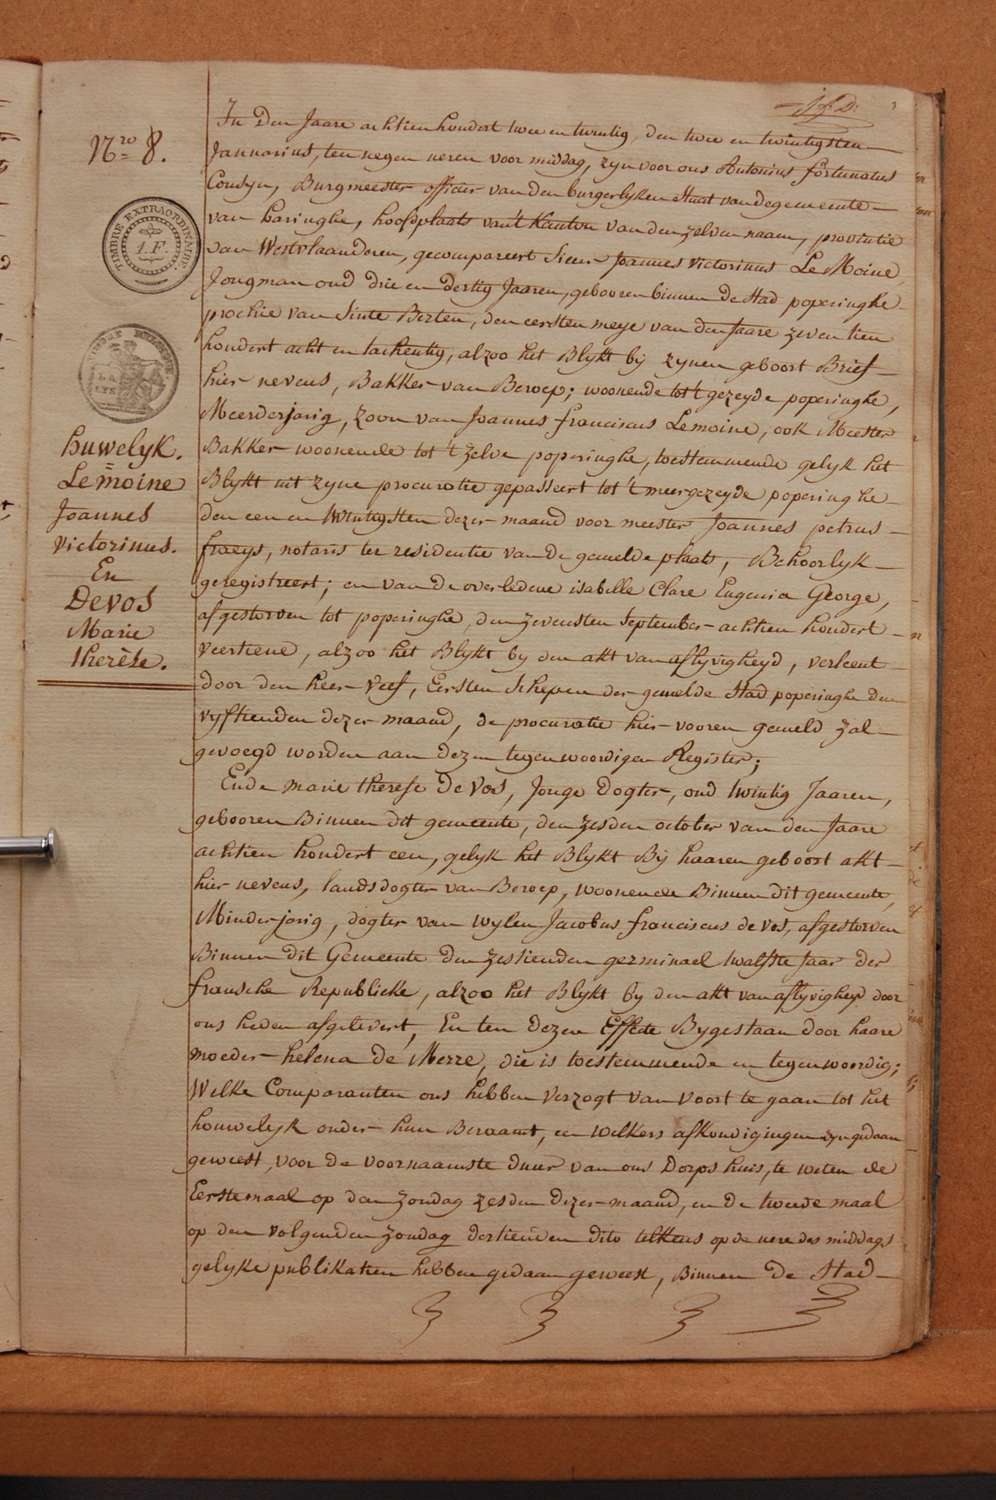 Nro 8.
TIMBRE EXTRAORDINAIRE
1.F.
huwelyk.
Lemoine
Joannes
victorinus.
En
Devos
Marie
therèse.
In den Jaare achtien hondert twee en twintig, den twee en twintigsten
Januarius, ten negen ueren voor middag, zyn voor ons Antonius fortunatus
Comsyn, Burgmeester officier van den burgerlyken Staat van de gemeente
van haringhe, hoofdplaats van't Kanton van den zelven naam, provintie
van Westvlaanderen, gecompareert Sieur Joannes victorinus Le Moine,
Jongman oud drie en dertig Jaaren, gebooren binnen de Stad poperinghe
prochie van Sinte Berten, den eersten meye van den Jaare zeven tien
hondert acht en tachentig, alzoo het Blykt bij zynen geboort Brief
hier nevens, Bakker van Beroep; woonende tot 't gezeyde poperinghe,
Meerderjarig, zoon van Joannes franciscus Lemoine, ook Meester
Bakker woonende tot 't zelve poperinghe, toestemmende gelyk het
Blykt uit zyne procuratie gepasseert tot 't meergezeyde poperinghe
den een en twintigsten dezer maand voor meester Joannes petrus
fraeys, notaris ter residentie van de gemelde plaats, Behoorlyk
geregistreert; en van de overledene isabelle Clare Eugenia George,
afgestorven tot poperinghe, den zevensten September achtien hondert
veertiene, alzoo het Blykt by den akt van aflyvigheyd, verleent
door den heer Veef, Eersten Schepen der gemelde Stad poperinghe den
vyftienden dezer maand, de procuratie hier vooren gemeld zal
gevoegd worden aan dezen tegenwoordigen Register;
Ende marie therese De Vos, Jonge Dogter, oud twintig Jaaren,
gebooren Binnen dit gemeente, den zesden october van den Jaare
achtien hondert een, gelyk het Blykt Bij haaren geboort akt
hier nevens, landsdogter van Beroep, woonende Binnen dit gemeente,
Minderjarig, dogter van wylen Jacobus franciscus de vos, afgestorven
Binnen dit Gemeente den zestienden germinael twalfste Jaar der
fransche Republieke, alzoo het Blykt by den akt van aflyvigheyd door
ons heden afgelevert, En ten dezen Effecte Bygestaan door haare
moeder helena de Merre, die is toestemmende en tegenwoordig;
Welke Comparanten ons hebben verzogt van voort te gaan tot het
houwelyk onder hun Beraamt, en welkers afkondigingen zyn gedaan
geweest, voor de voornaamste duur van ons Dorps huis, te weten de
Eerstemaal op den zondag zesden dezer maand, en de tweede maal
op den volgenden zondag dertienden dito telkens op de uere des middags
gelyke publikatien hebben gedaan geweest, Binnen de Stad